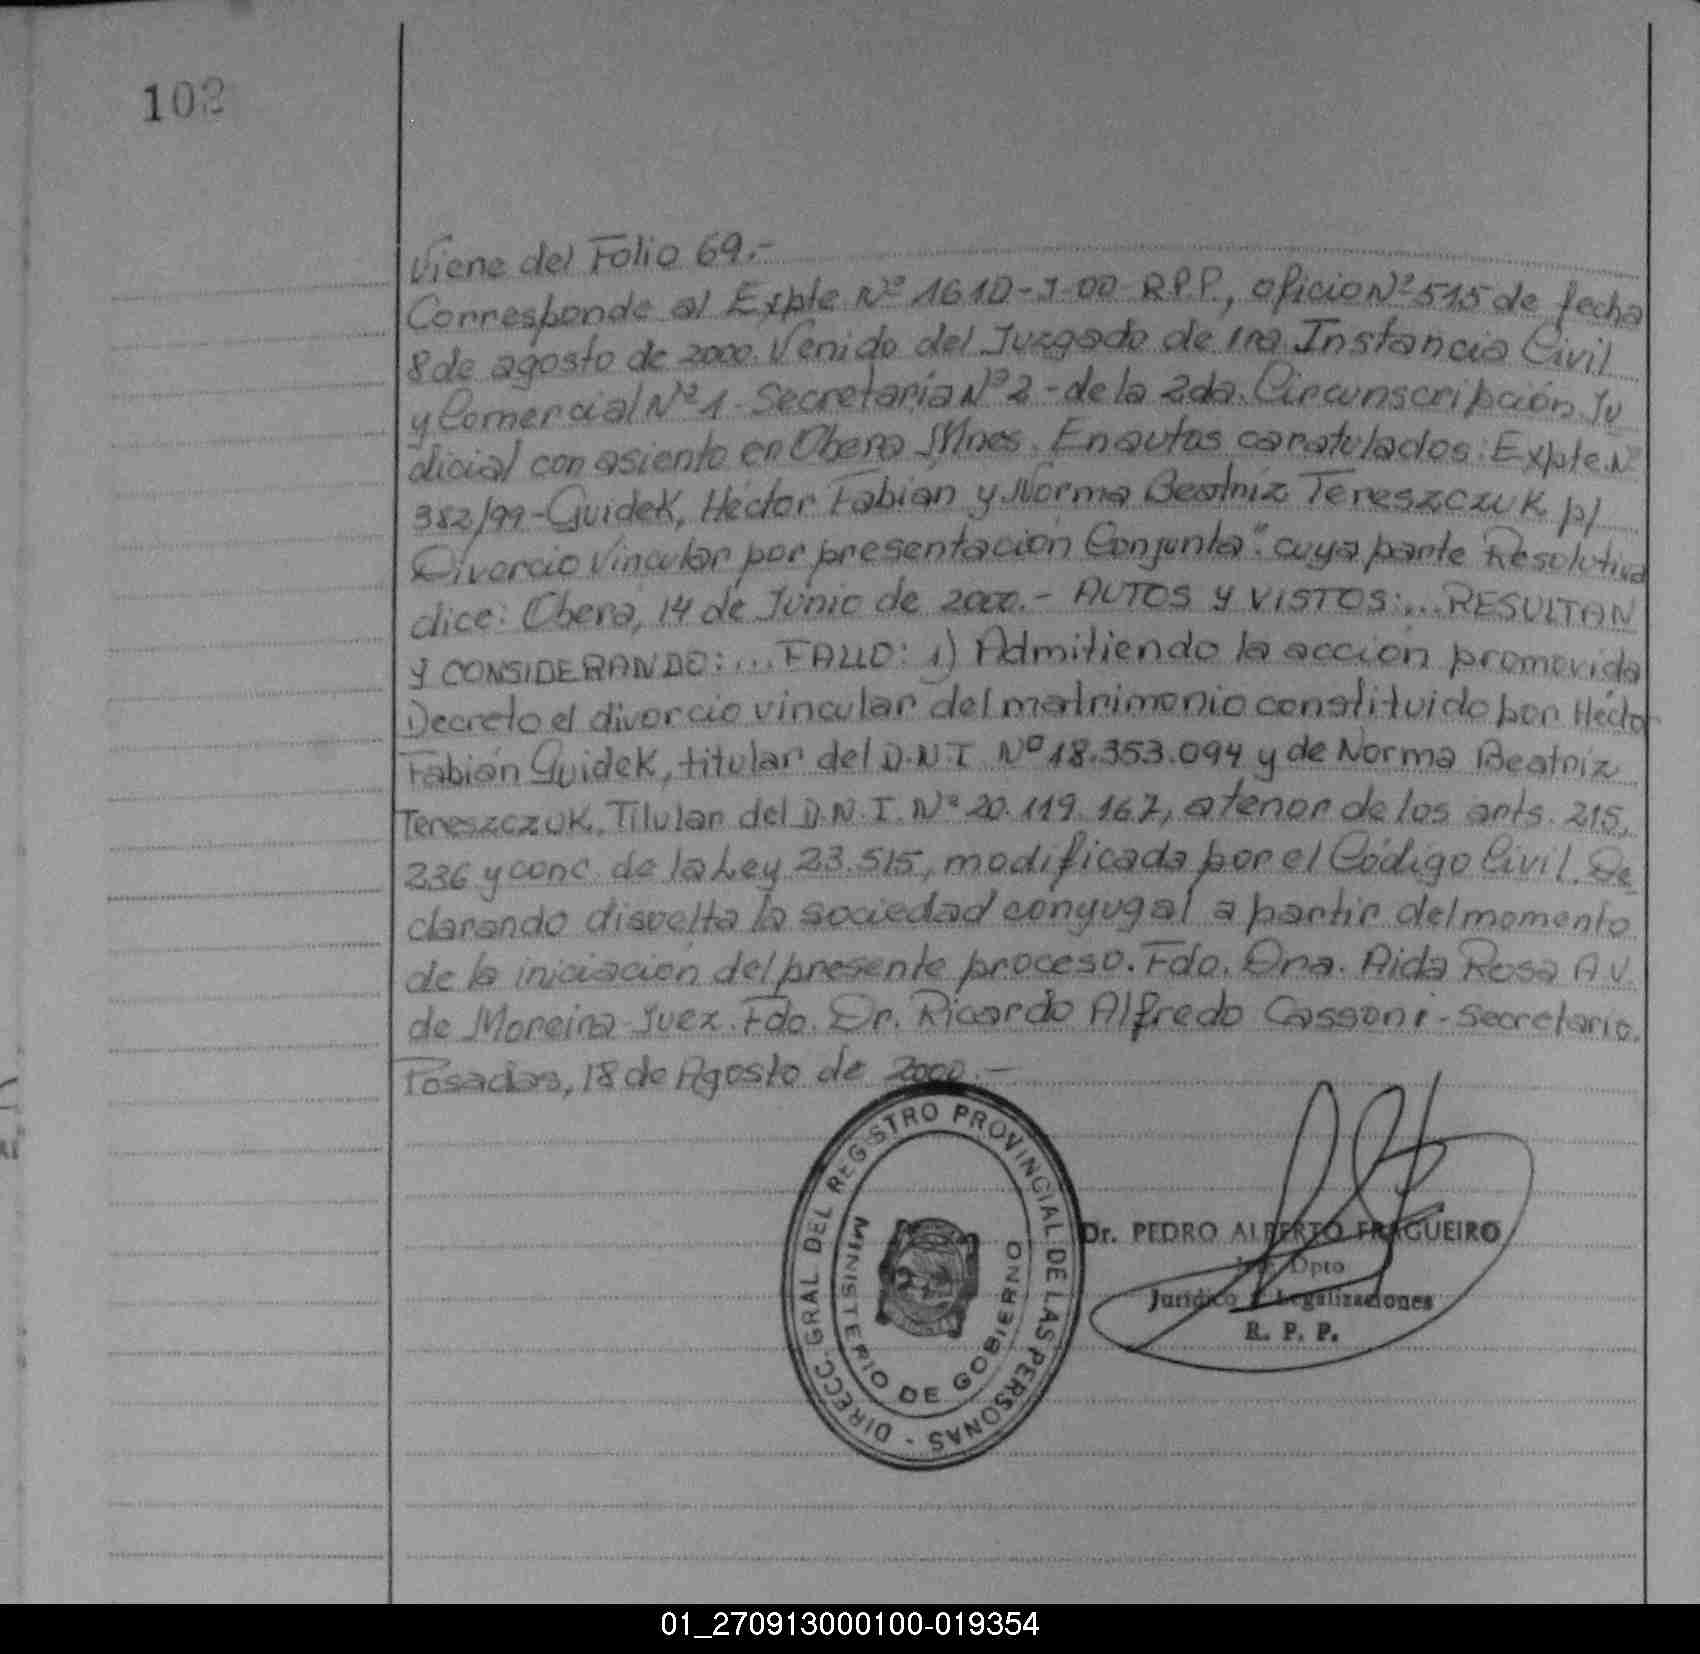 102
Viene del Folio 69.-
Corresponde al Expte Nº 1610-J-00-R.P.P., oficio Nº 515 de fecha
8 de agosto de 2000. Venido del Juzgado de 1ra Instancia Civil
y Comercial Nº 1. Secretaría Nº 2 - de la 2da. Circunscripción Ju
dicial con asiento en Obera Mnes. En autos caratulados: Expte. Nº
382/99 - Guidek, Héctor Fabian y Norma Beatriz Tereszczuk p/
Divorcio Vincular por presentación Conjunta". cuya parte Resolutiva
dice: Oberá, 14 de Junio de 2000.- AUTOS Y VISTOS:... RESULTAN
Y CONSIDERANDO:... FALLO: 1) Admitiendo la acción promovida
Decreto el divorcio vincular del matrimonio constituido por Héctor
Fabián Guidek, titular del D.N.I. Nº 18.353.094 y de Norma Beatriz
Tereszczuk, Titular del D.N.I. Nº 20.119.167, a tenor de los arts. 215,
236 y conc. de la Ley 23.515, modificada por el Código Civil. De
clarando disuelta la sociedad conyugal a partir del momento
de la iniciación del presente proceso. Fdo. Dra. Aida Rosa A.V.
de Moreira Juez. Fdo. Dr. Ricardo Alfredo Cassoni - Secretario.
Posadas, 18 de Agosto de 2000.-
DIRECC. GRAL DEL REGISTRO PROVINCIAL DE LAS PERSONAS -
MINISTERIO DE GOBIERNO
Dr. PEDRO ALBERTO FRAGUEIRO
Dpto
Jurídico y Legalizaciones
R. P. P.
01_270913000100-019354